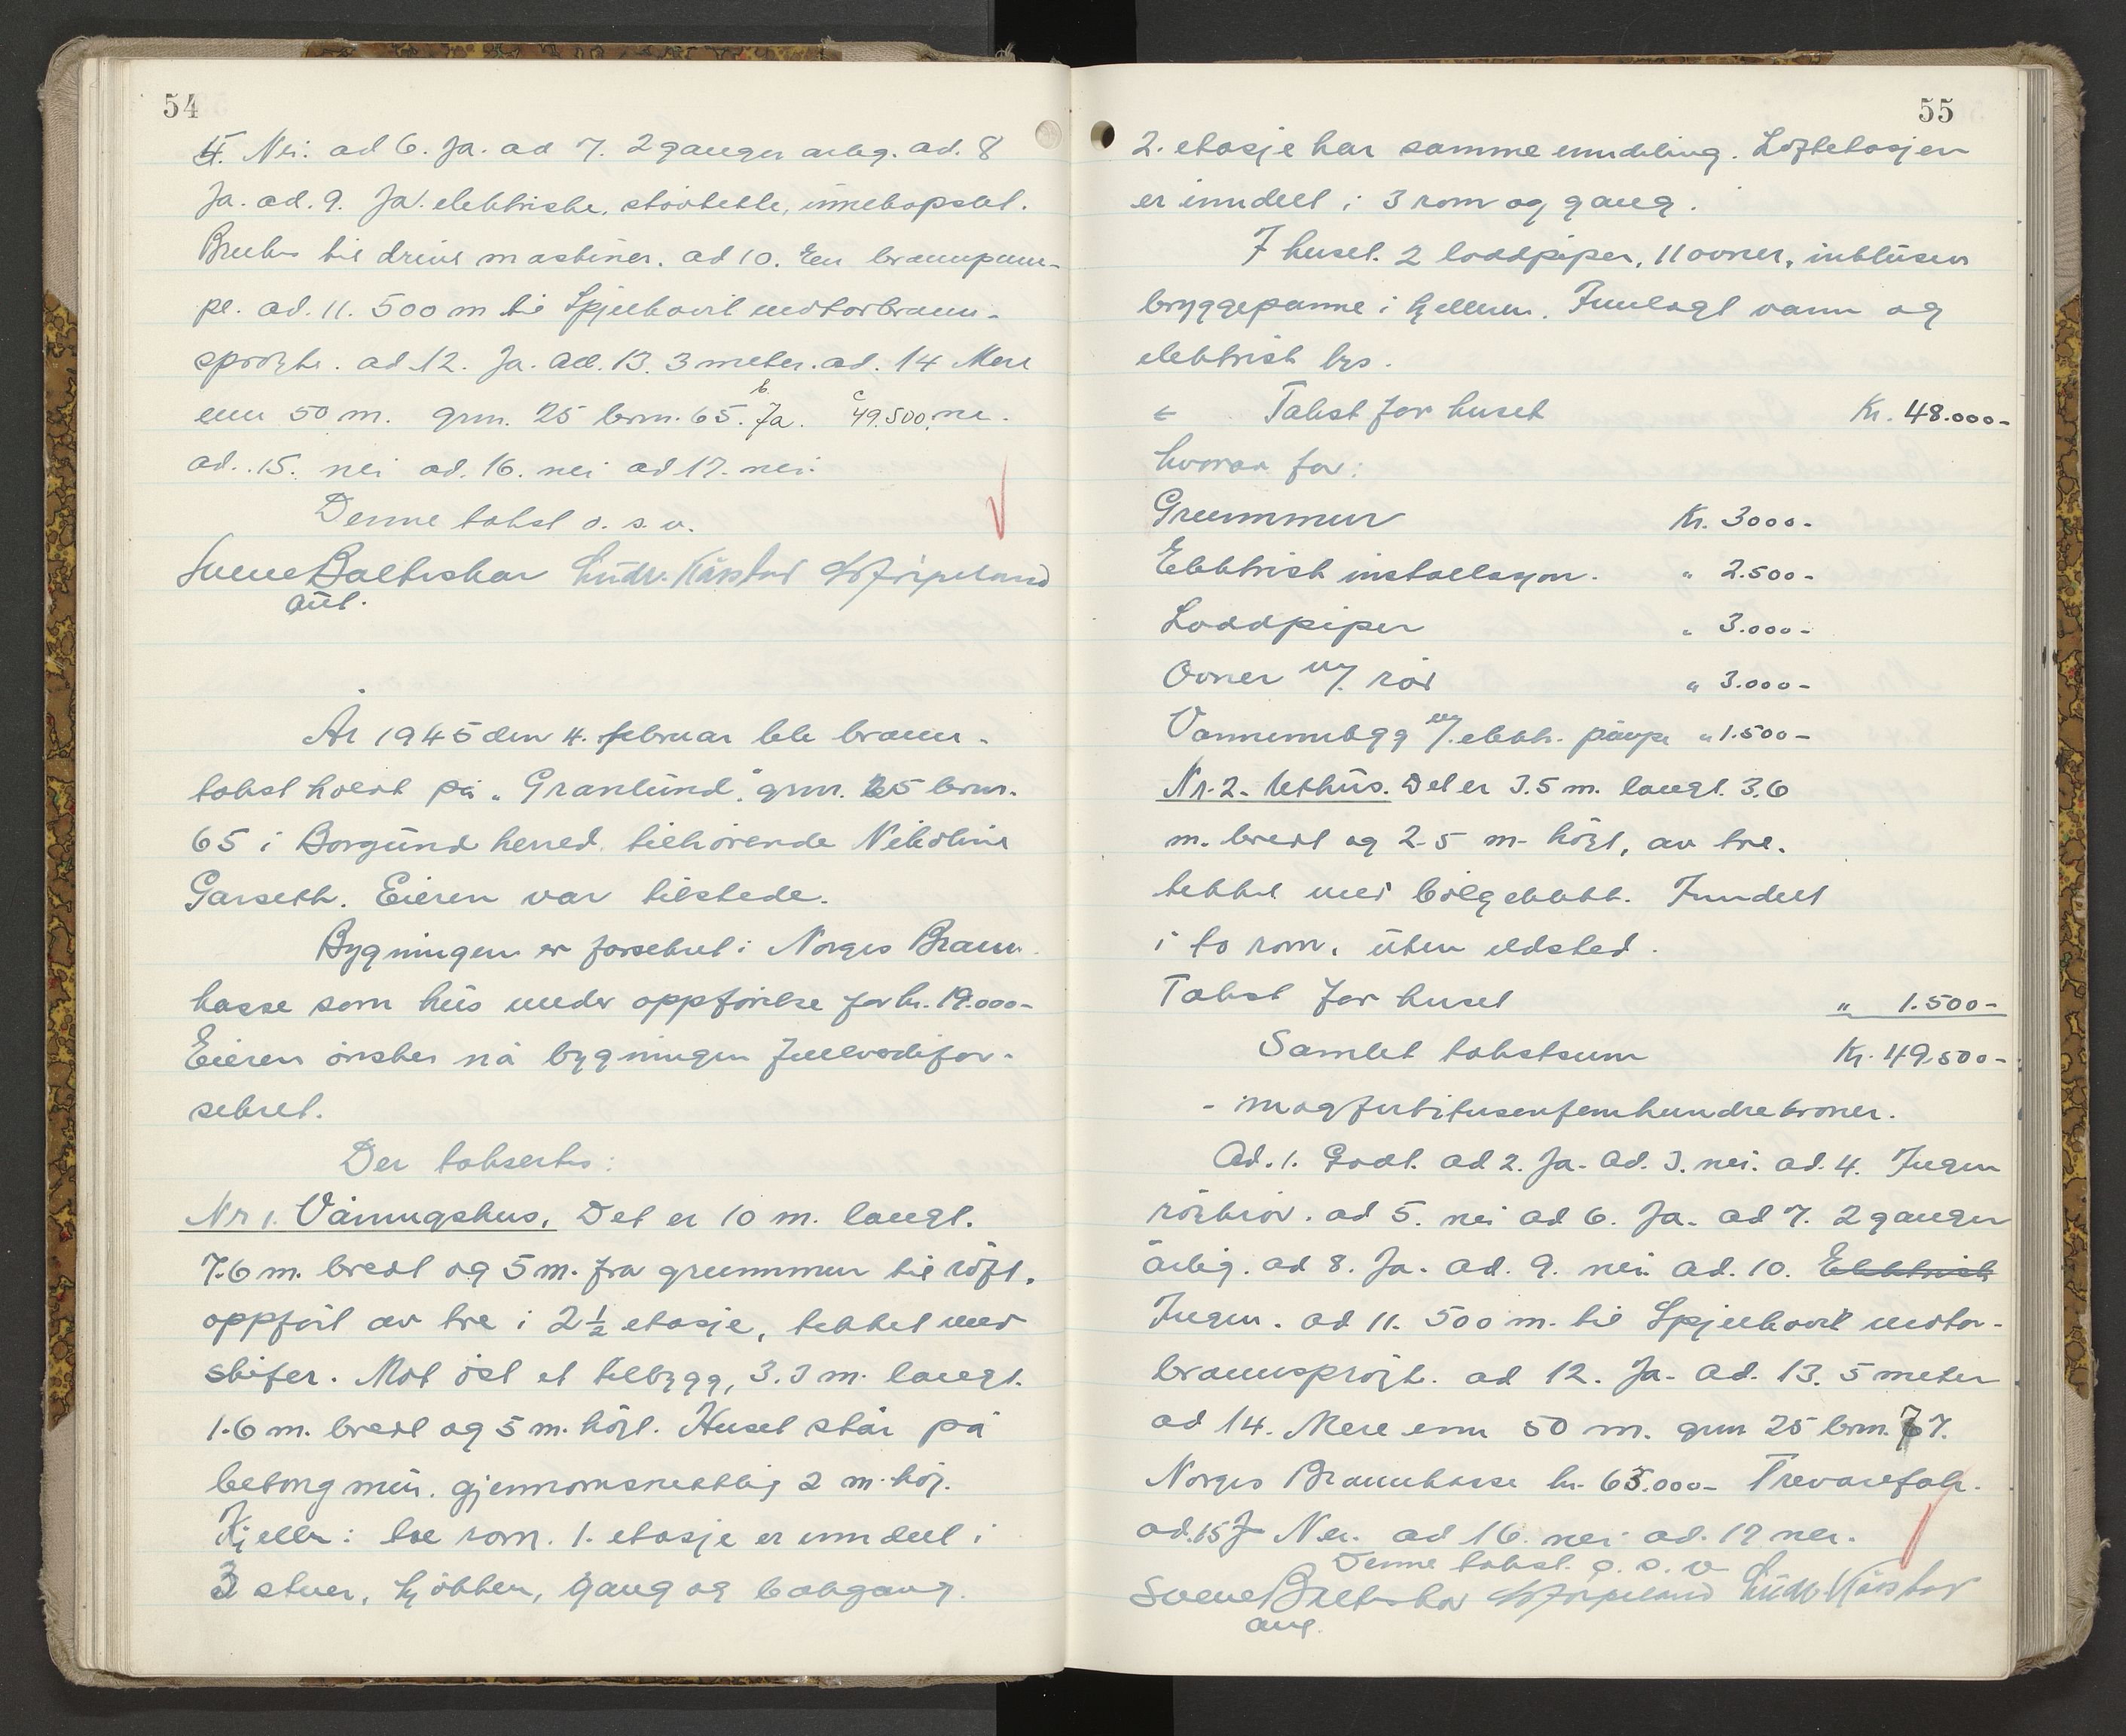 54
5. Nei. ad 6. Ja. ad 7. 2 ganger årlig. ad. 8
Ja. ad. 9. Ja. elektriske, støvtette, innekapslet.
Brukes til drive maskiner. ad 10. En brannpum-
pe. ad. 11. 500 m til Spjelkavik motorbrann-
sprøyte. ad 12. Ja. ad. 13. 3 meter. ad. 14 Mere
enn 50 m. grn. 25 brn. 65. b. Ja. c 49.500, nei.
ad. 15. nei ad. 16. nei ad 17. nei.
Denne takst o. s. v.
Svene Balteskar Ludv. Kårstad
aut.
År 1945 den 4. februar ble brann-
takst holdt på "Granlund", grn. 25 brn.
65 i Borgund herred, tilhørende Nikoline
Garseth. Eieren var tilstede.
Bygningen er forsikret i Norges Brann-
kasse som hus under oppførelse for kr. 19.000-
Eieren ønsker nå bygningen fullverdifor-
sikret.
Der taksertes:
Nr 1. Våningshus. Det er 10 m. langt.
7.6 m. bredt og 5 m. fra grunnmur til røft,
oppført av tre i 2½ etasje, tekket med
skifer. Mot øst et tilbygg, 3.3 m. langt.
1.6 m. bredt og 5 m. høgt. Huset står på
betongmur, gjennomsnittlig 2 m. høg.
Kjeller: tre rom. 1. etasje er inndelt i
3 stuer, kjøkken, gang og bakgang.
55
2. etasje har samme inndeling. Loftetasjen
er inndelt i 3 rom og gang.
I huset 2 loddpiper, 11 ovner, inklusiv
bryggepanne i kjelleren. Innlagt vann og
elektrisk lys.
Takst for huset Kr. 48.000-
hvorav for:
Grunnmur Kr. 3000-
Elektrisk installasjon. " 2.500-
Loddpiper " 3.000-
Ovner m/. rør " 3.000-
Vanninnlegg m/. elektr. pumpe " 1.500-
Nr. 2. Uthus. Det er 3.5 m. langt. 3.6
m. bredt og 2.5 m. høgt, av tre.
tekket med bølgeblikk. Inndelt
i to rom, uten ildsted.
Takst for huset " 1.500-
Samlet takstsum Kr. 49.500-
- niogførtitusenfemhundrekroner.
Ad. 1. Godt. ad 2. Ja. ad. 3. nei. ad. 4. Ingen
rørbrør. ad 5. nei ad 6. Ja. ad 7. 2 ganger
årlig. ad 8. Ja. ad. 9. nei. ad. 10. Elektrisk
Ingen. ad 11. 500 m. til Spjelkavik motor-
brannsprøyte. ad 12. Ja. ad. 13. 5 meter
ad 14. Mere enn 50 m. grn 25 brn. 77.
Norges Brannkasse kr. 65.000- Trevarefabr.
ad. 15 Nei. ad 16. nei ad. 17 nei.
Denne takst. o. s. v
Svene Balteskar Ludv. Kårstad